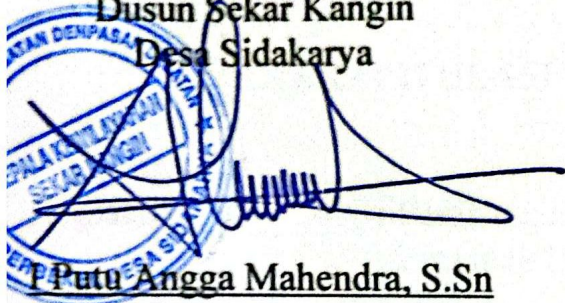 Dusun Sekar Kangin
Desa Sidakarya
KEPALA KEWILAYAHAN
SEKAR KANGIN
I Putu Angga Mahendra, S.Sn